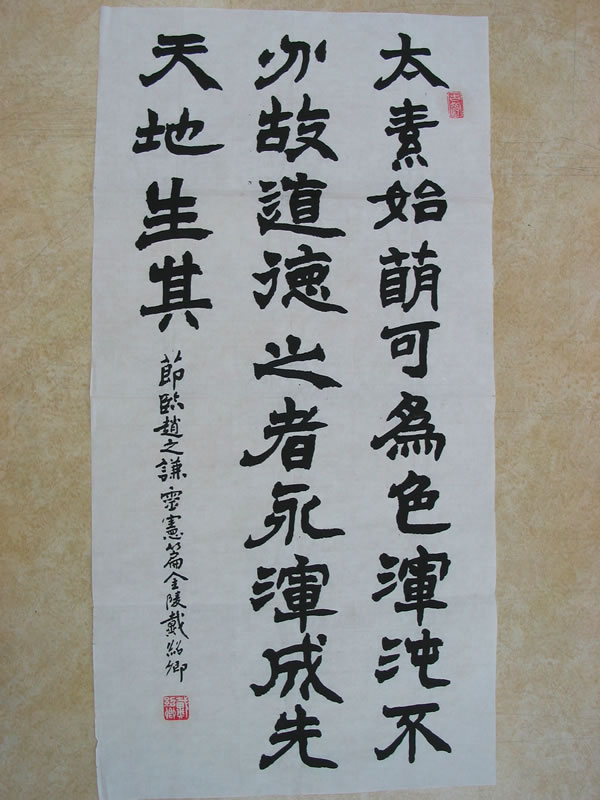 太素始萌可為色渾沌不
分故道德之者永渾成先
天地生其
節臨趙之謙靈憲篇金陵戴紹卿
戴紹卿